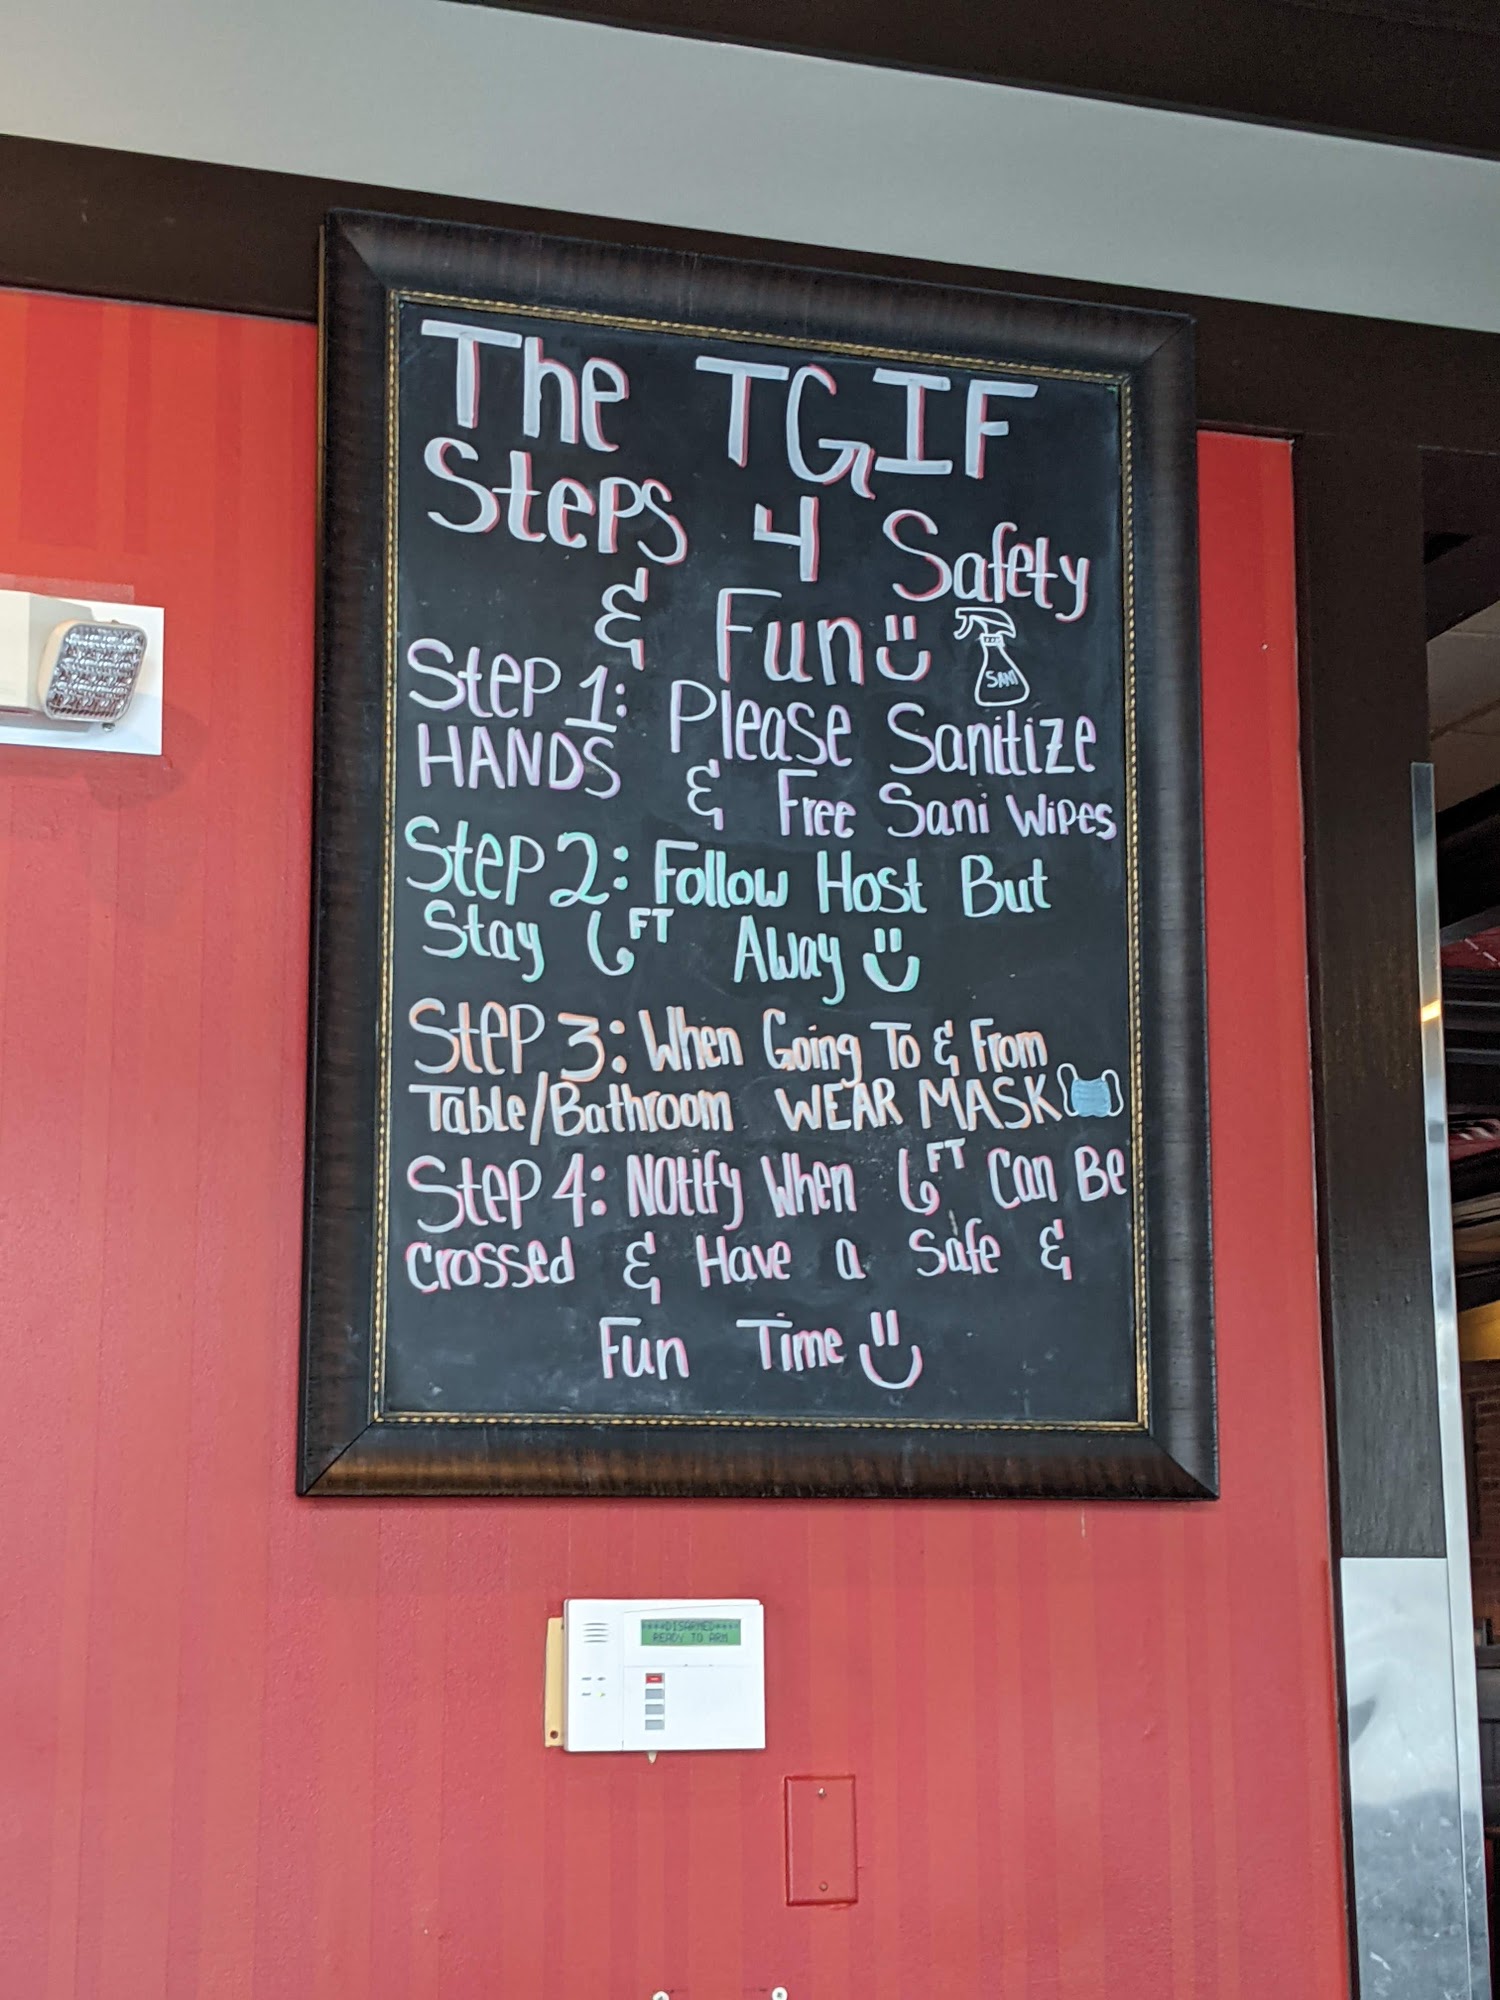 The TGIF
Steps 4 Safety
& Fun
SANI
Step 1: Please Sanitize
HANDS & Free Sani Wipes
Step 2: Follow Host But
Stay 6FT Away
Step 3: When Going To & From
Table/Bathroom WEAR MASK
Step 4: Notify When 6FT Can Be
crossed & Have a Safe &
Fun Time
****DISARMED****
READY TO ARM